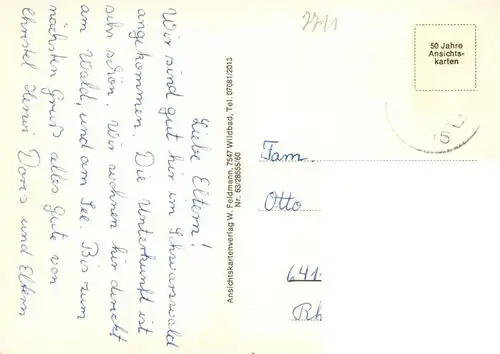 Liebe Eltern!
Wir sind gut hir im Schwarswald
angekommen. Die Unterkunft ist
sehr schön. Wir wohnen hir direckt
am Wald, und am See. Bis zum
nächsten Gruß alles Gute von
Christel Henri Doris und Eltern
Ansichtskartenverlag W. Feldmann, 7547 Wildbad, Tel. 07081/2013
Nr. 63/28555/60
2211
50 Jahre
Ansichts-
karten
Fam.
Otto
641
Rh